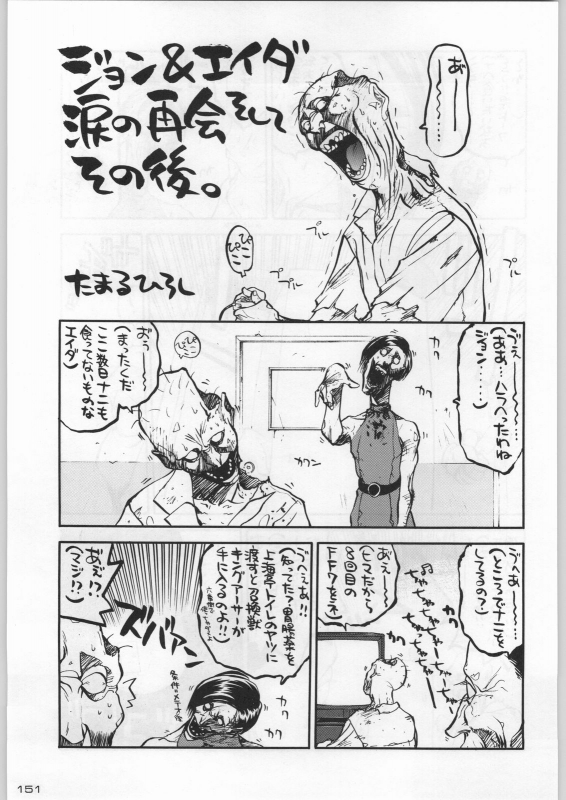 ジョン&エイダ
涙の再会そして
その後。
たまるひろし
あ゛ー
――
……
ぴこ
ぴこ
プル
プル
プル
プル
ゔぇぇ――……
(ああ…ハラへったわね
ジョン……)
カク
カク
カクン
ぴこ
ぴこ
お゛ぅ―――
(まったくだ
ここ数日ナニも
食ってないものな
エイダ)
ゔへぁ――…
(ところでナニを
してるの?)
♫
ちゃちゃーちゃ
ちゃーちゃ
ちゃっちゃ
ちゃー
お゛ぇぁ――
(ヒマだから
8回目の
FF7をネ)
ゔへぇぇぁ!!
(知ってた?胃腸薬を
上海亭トイレのヤツに
渡すと召換獣
キングアーサーが
手に入るのよ!!)
条件のメテオ後
カク
カク
ズバァン
あ゛ぉ!?
(マジ!?)
151